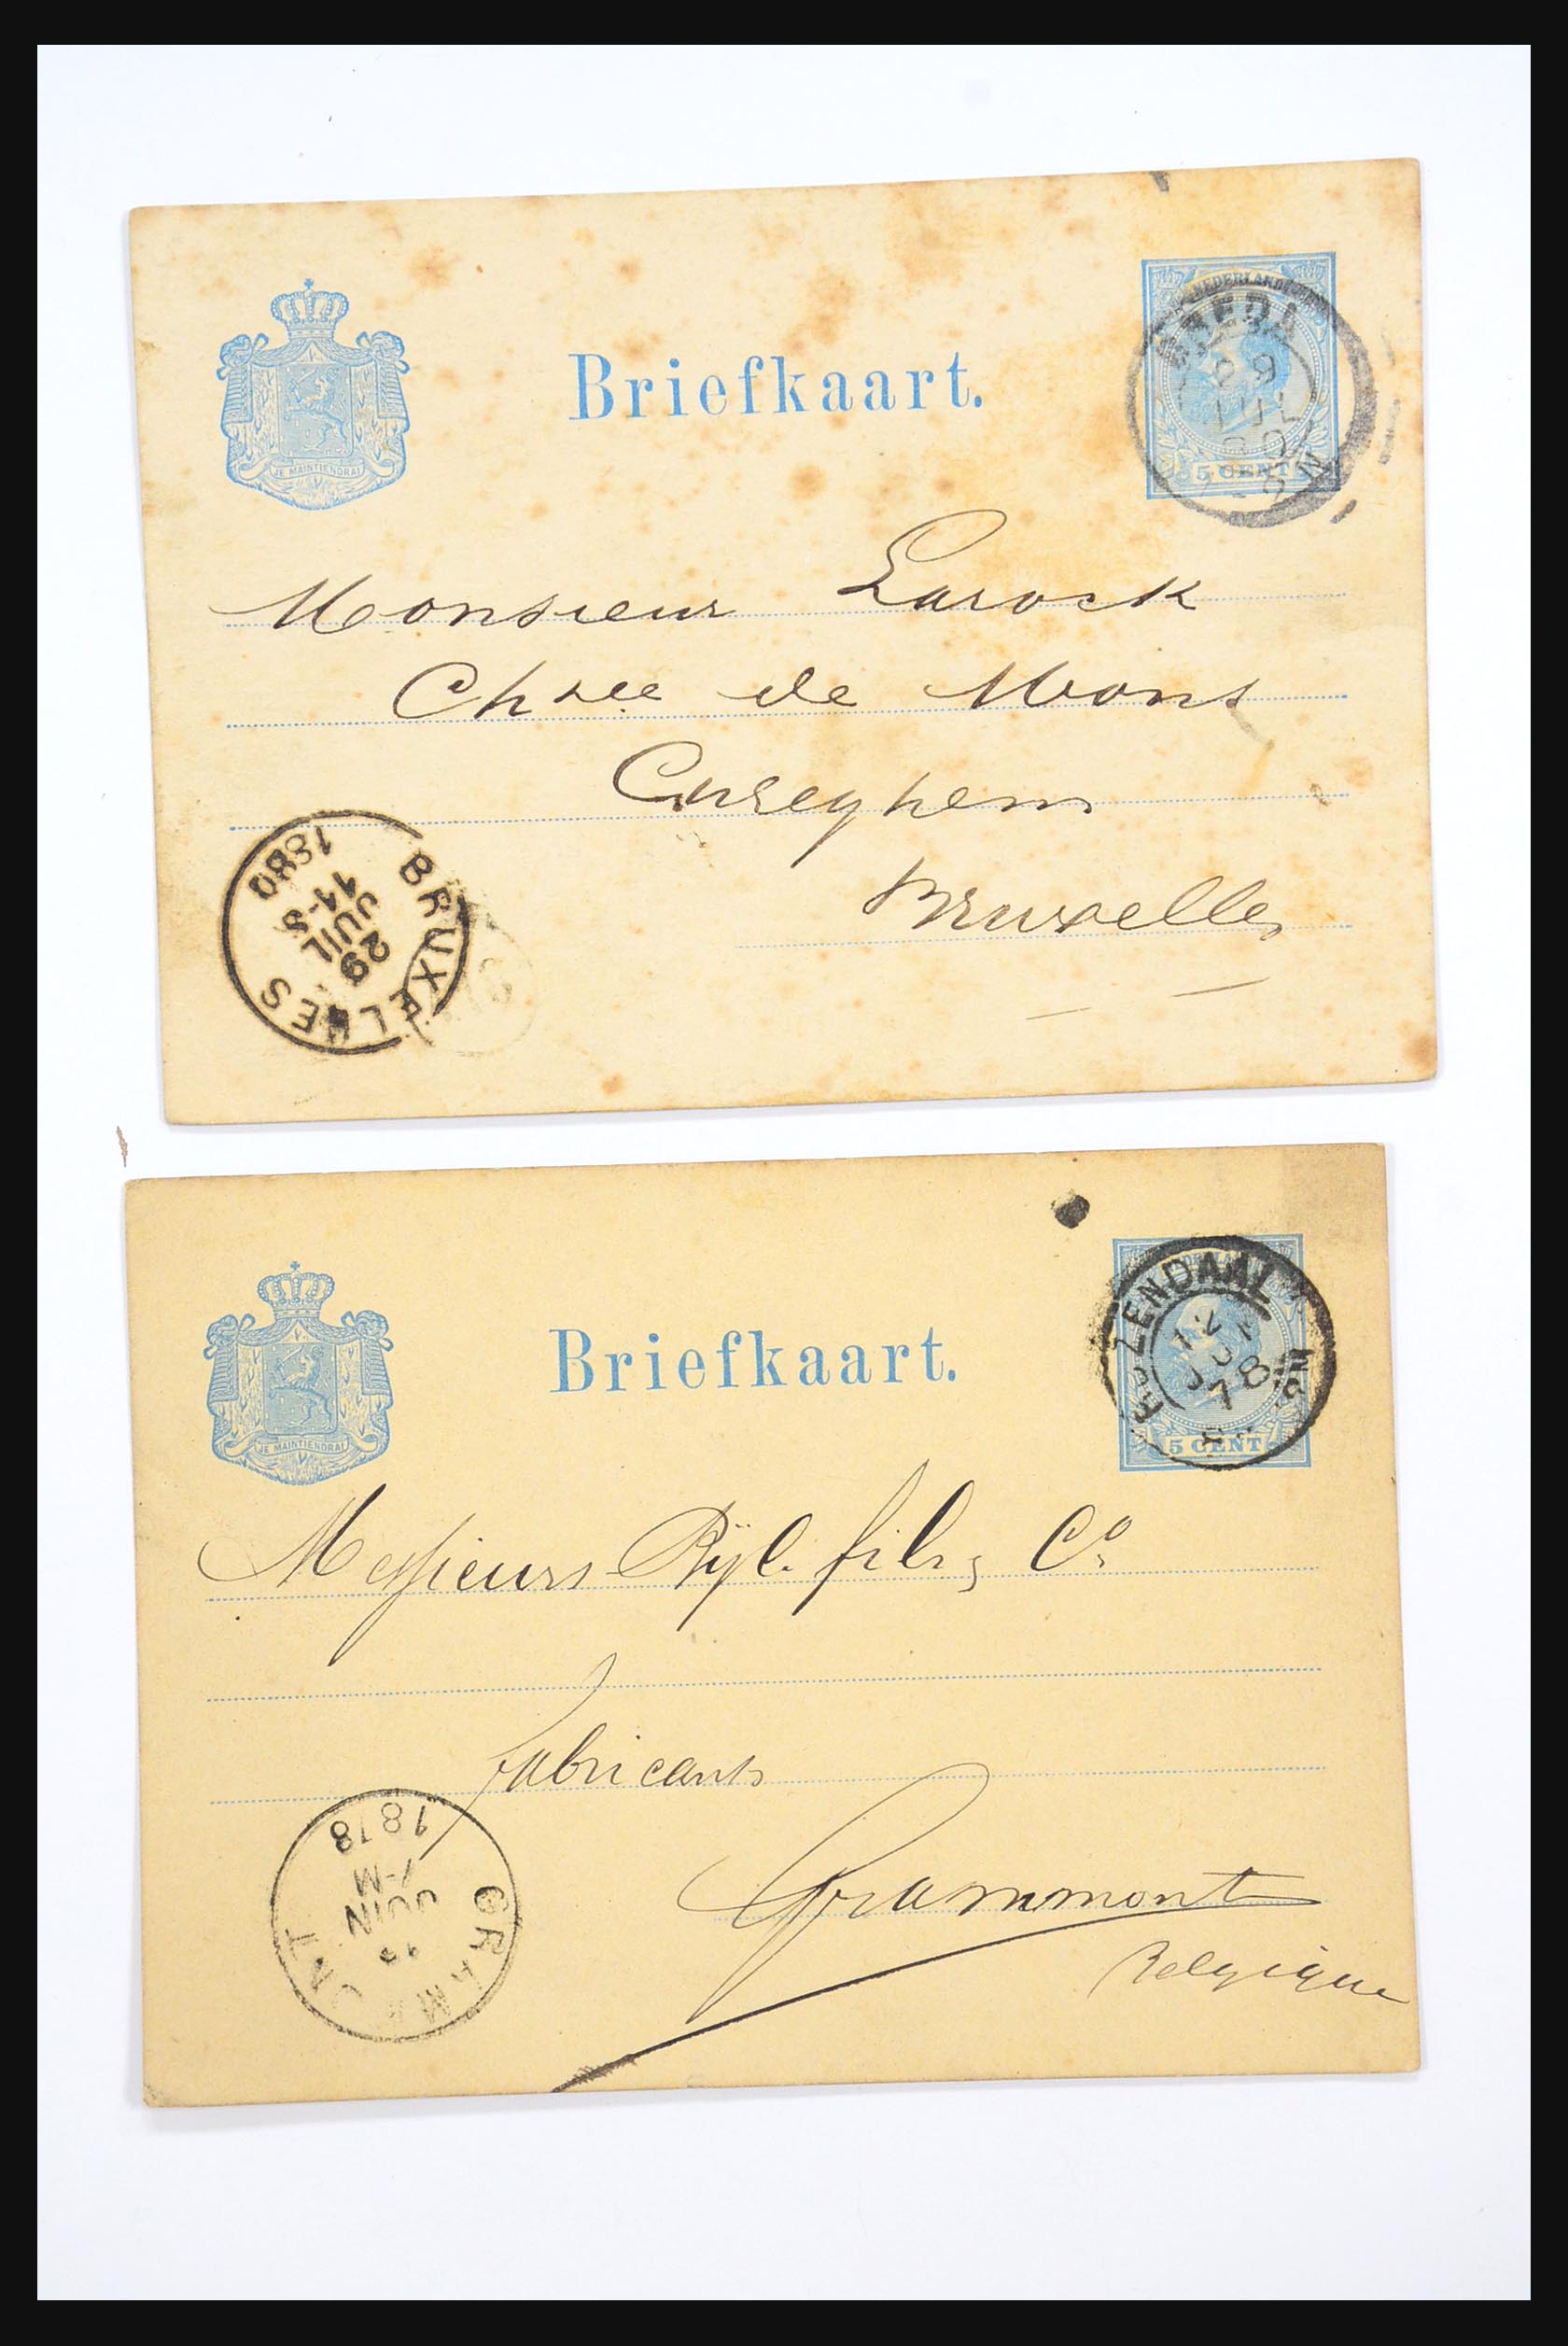 NEDERLAND
Briefkaart.
BREDA
29
JUL
80
5 CENT
JE MAINTIENDRAI
Monsieur Larock
Chsée de Mons
Cureghem
Bruxelles
BRUXELLES
29
JUIL
1880
Briefkaart.
ROZENDAAL
12
78
5 CENT
JE MAINTIENDRAI
Messieurs Rÿl. fils & Co
fabricants
Grammont
Belgique
JUIN
7-M
1878